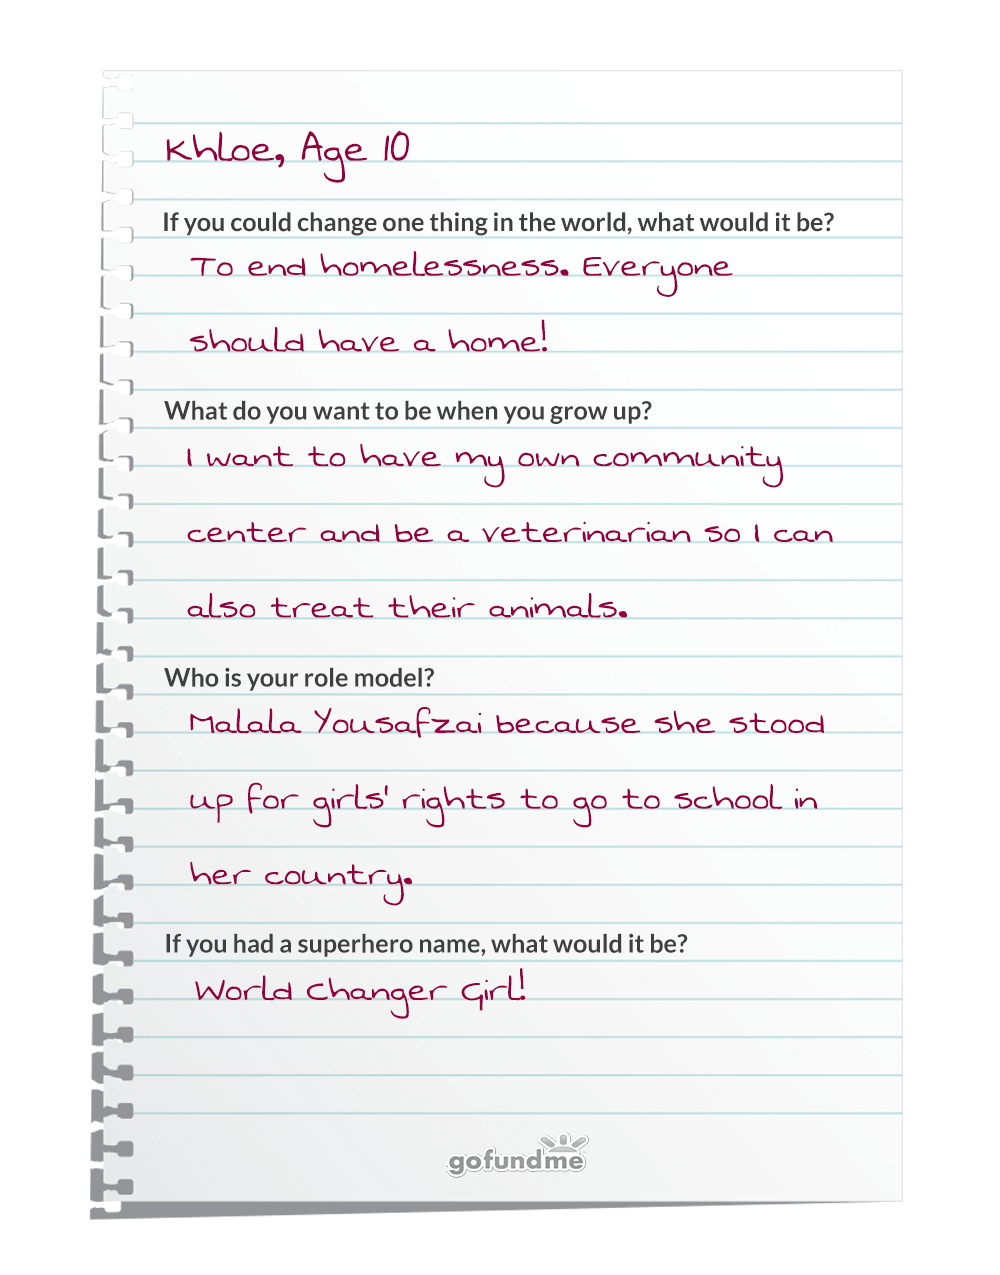 Khloe, Age 10
If you could change one thing in the world, what would it be?
To end homelessness. Everyone
should have a home!
What do you want to be when you grow up?
I want to have my own community
center and be a veterinarian so I can
also treat their animals.
Who is your role model?
Malala Yousafzai because she stood
up for girls' rights to go to school in
her country.
If you had a superhero name, what would it be?
World Changer Girl!
gofundme